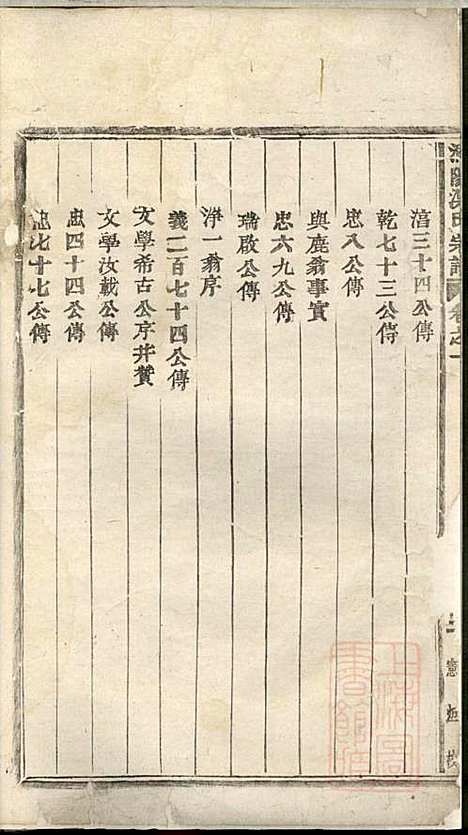 宗譜 卷之一
淯三十四公傳
乾七十三公傳
忠八公傳
與鹿翁事實
忠六九公傳
瑞啟公傳
淨一翁序
義二百七十四公傳
文學希古公序并贊
文學汝載公傳
忠四十四公傳
忠七十七公傳